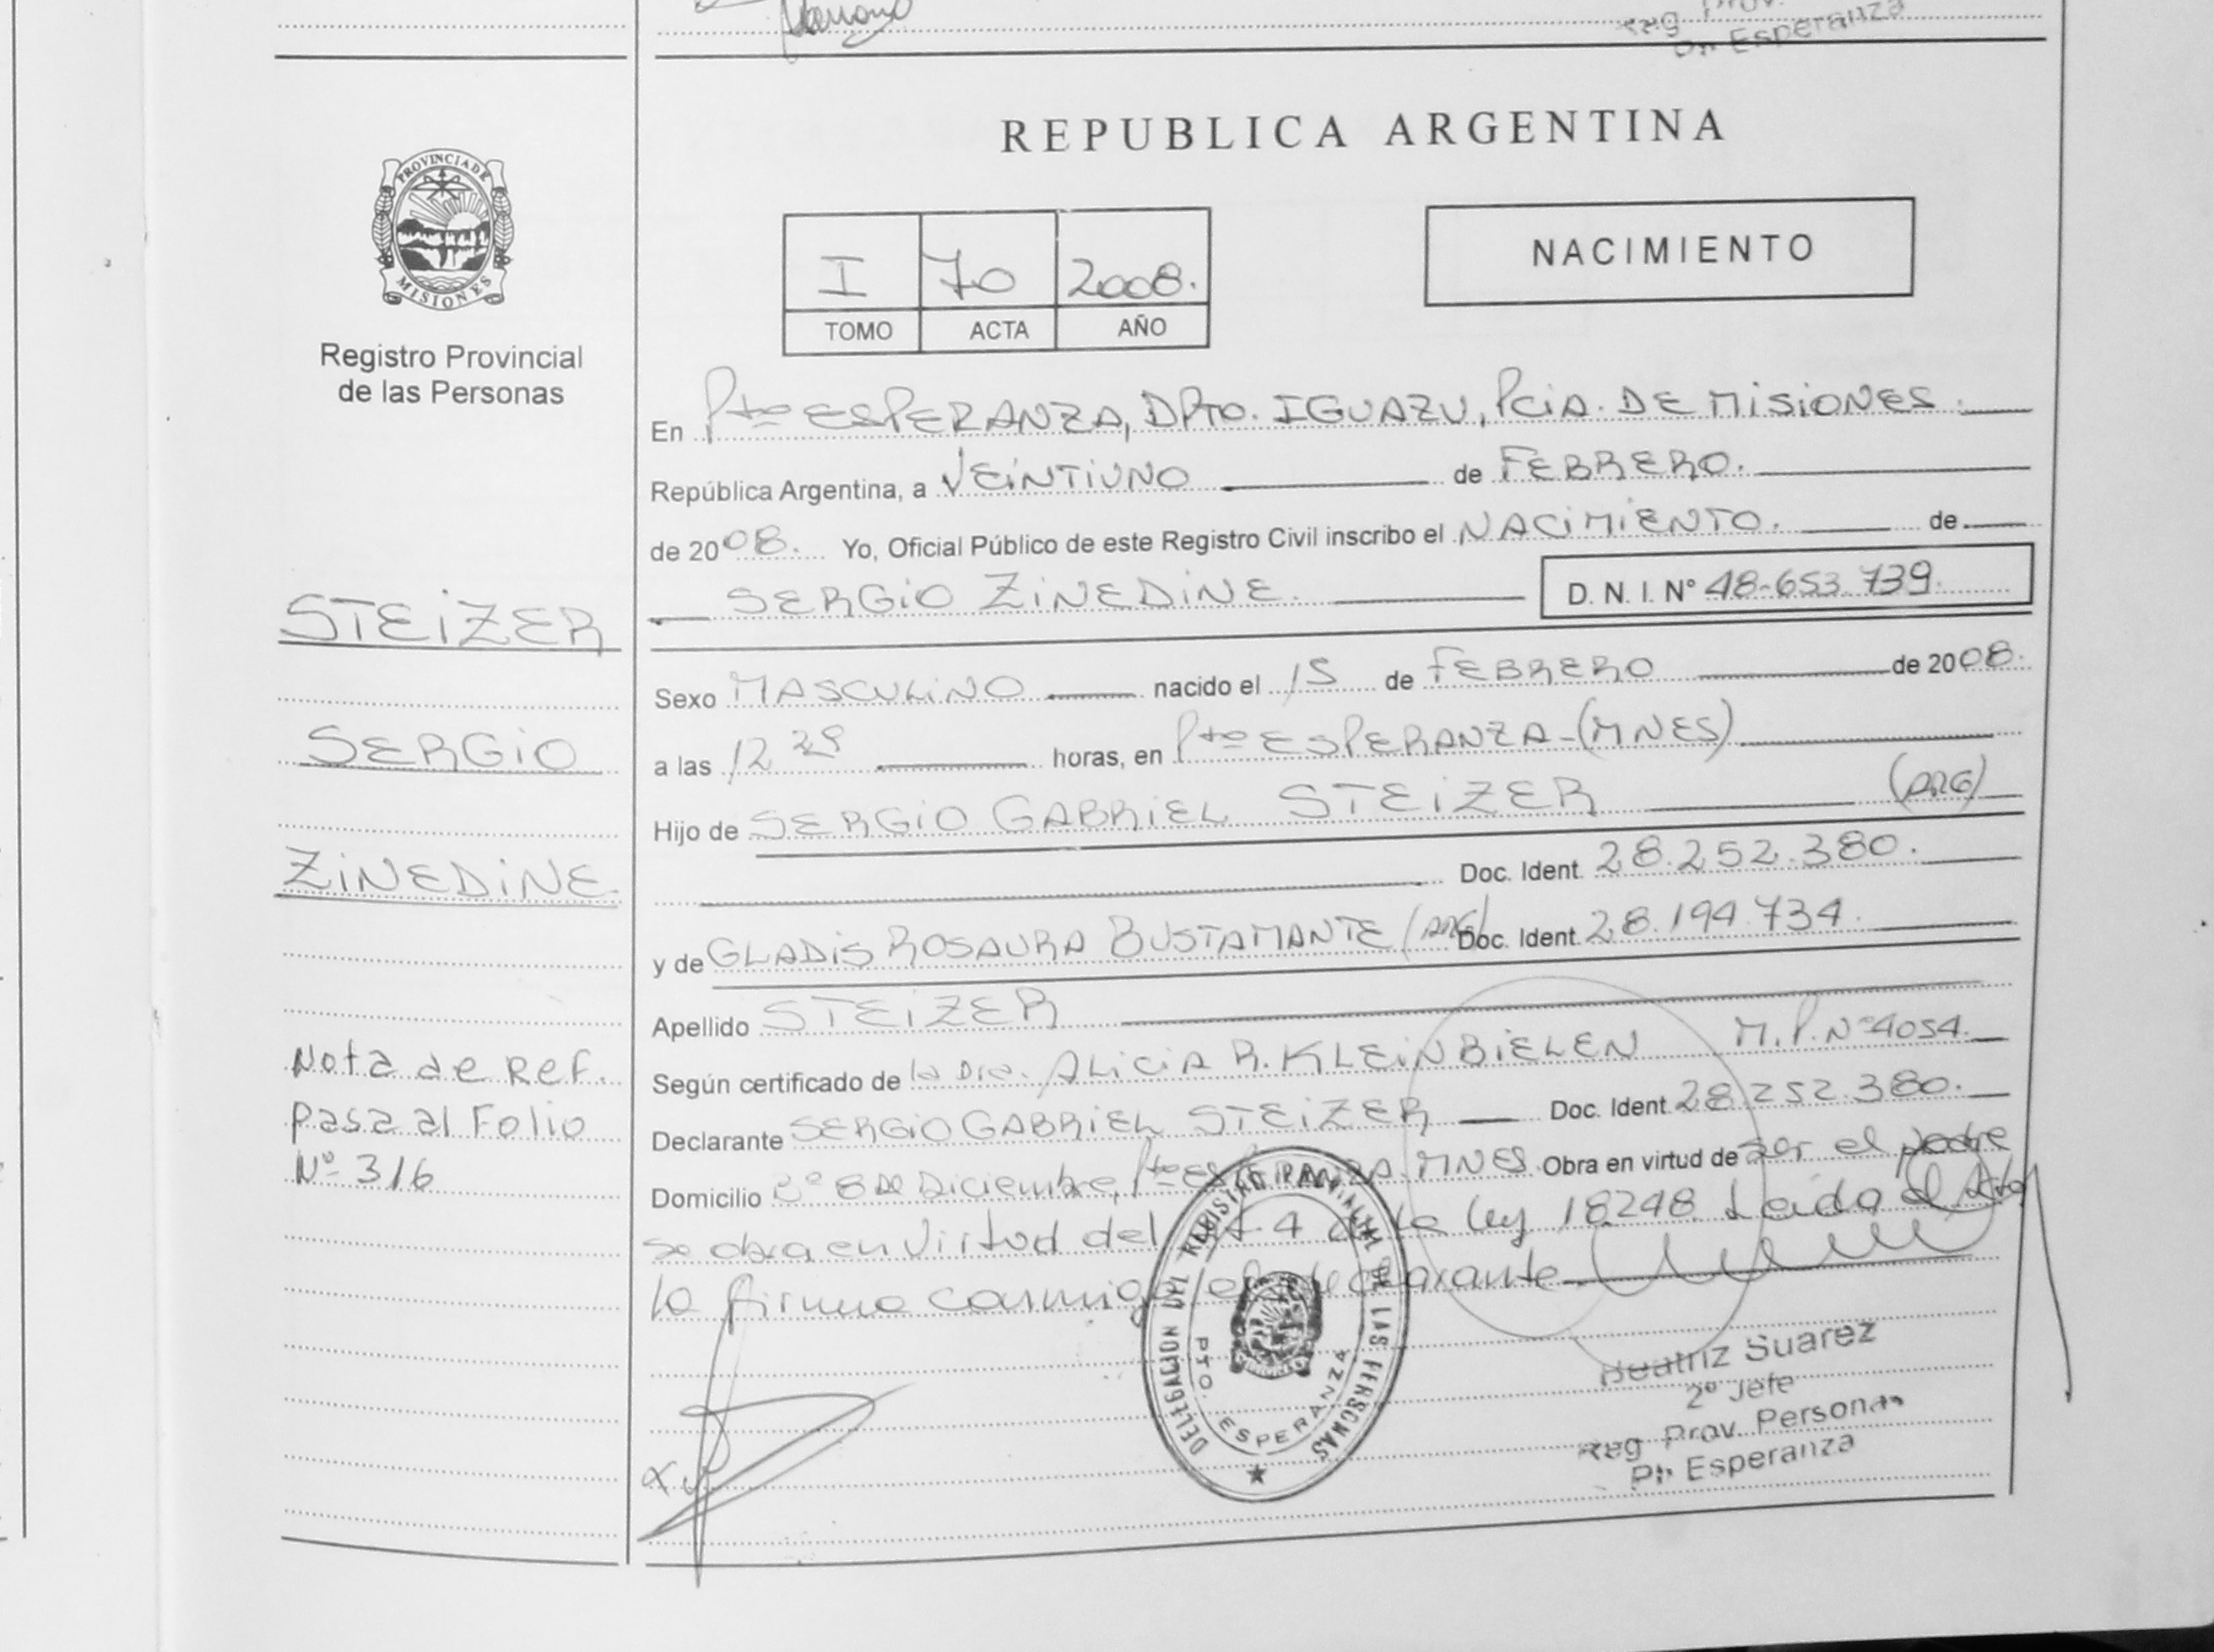 Reg Prov.
Pto Esperanza
PROVINCIA DE
MISIONES
Registro Provincial
de las Personas
STEIZER
SERGIO
ZINEDINE.
Nota de Ref.
Pasa al Folio
Nº 316
REPUBLICA ARGENTINA
NACIMIENTO
I 70 2008.
TOMO ACTA AÑO
En Pto ESPERANZA, DPTO. IGUAZU, PCIA. DE MISIONES.
República Argentina, a VEINTIUNO de FEBRERO.
de 2008. Yo, Oficial Público de este Registro Civil inscribo el NACIMIENTO. de
SERGIO ZINEDINE. D. N. I. Nº 48-653.739.
Sexo MASCULINO nacido el 15 de FEBRERO de 2008.
a las 12 horas, en Pto ESPERANZA-(MNES)
Hijo de SERGIO GABRIEL STEIZER (ARG)
Doc. Ident. 28.252.380.
y de GLADIS ROSAURA BUSTAMANTE (ARG) Doc. Ident. 28.194.734.
Apellido STEIZER
Según certificado de la Dra. ALICIA R. KLEINBIELEN M.P. Nº 4054.
Declarante SERGIO GABRIEL STEIZER Doc. Ident. 28.252.380.
Domicilio Bº 8 DE Diciembre, Pto ESPERANZA-MNES. Obra en virtud de ser el padre
se obra en virtud del Art 4 de la Ley 18248. Leida el Acta
la firma conmigo el declarante
DELEGACION DEL REGISTRO PROVINCIAL DE LAS PERSONAS
PTO. ESPERANZA
Beatriz Suarez
2º Jefe
Reg Prov. Personas
Pto Esperanza